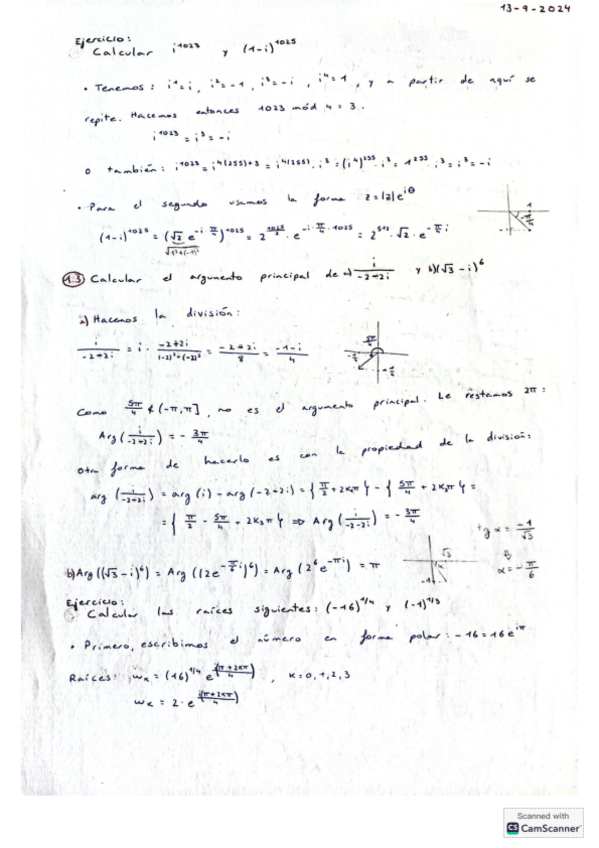 13-9-2024
Ejercicio:
Calcular i^1023 y (1-i)^1025
• Tenemos: i^1=i, i^2=-1, i^3=-i, i^4=1, y a partir de aquí se
repite. Hacemos entonces 1023 mód 4 = 3.
i^1023 = i^3 = -i
o también: i^1023 = i^(4(255)+3) = i^(4(255)) · i^3 = (i^4)^255 · i^3 = 1^255 · i^3 = i^3 = -i
• Para el segundo usamos la forma z=|z|e^(iθ)
(1-i)^1025 = (√2 e^(-i·π/4))^1025 = 2^(1025/2) · e^(-i·π/4·1025) = 2^512 · √2 · e^(-π/4 i)
√(1²+(-1)²)
1.3 Calcular el argumento principal de a) i/(-2-2i) y b) (√3-i)^6
a) Hacemos la división:
i/(-2-2i) = i · (-2+2i)/((-2)²+(-2)²) = (-2-2i)/8 = (-1-i)/4
5π/4
Como 5π/4 ∉ (-π,π], no es el argumento principal. Le restamos 2π:
Arg(i/(-2-2i)) = -3π/4
Otra forma de hacerlo es con la propiedad de la división:
arg(i/(-2-2i)) = arg(i) - arg(-2-2i) = {π/2 + 2k₁π} - {5π/4 + 2k₂π} =
= {π/2 - 5π/4 + 2k₃π} ⇒ Arg(i/(-2-2i)) = -3π/4
tg α = -1/√3
α = -π/6
√3
-1
b) Arg((√3-i)^6) = Arg((2e^(-π/6 i))^6) = Arg(2^6 e^(-πi)) = π
Ejercicio:
Calcular las raíces siguientes: (-16)^1/4 y (-1)^1/3
• Primero, escribimos el número en forma polar: -16=16e^(iπ)
Raíces: wₖ = (16)^1/4 e^(i(π+2kπ)/4), k=0,1,2,3
wₖ = 2 · e^(i(π+2kπ)/4)
Scanned with
CS CamScanner